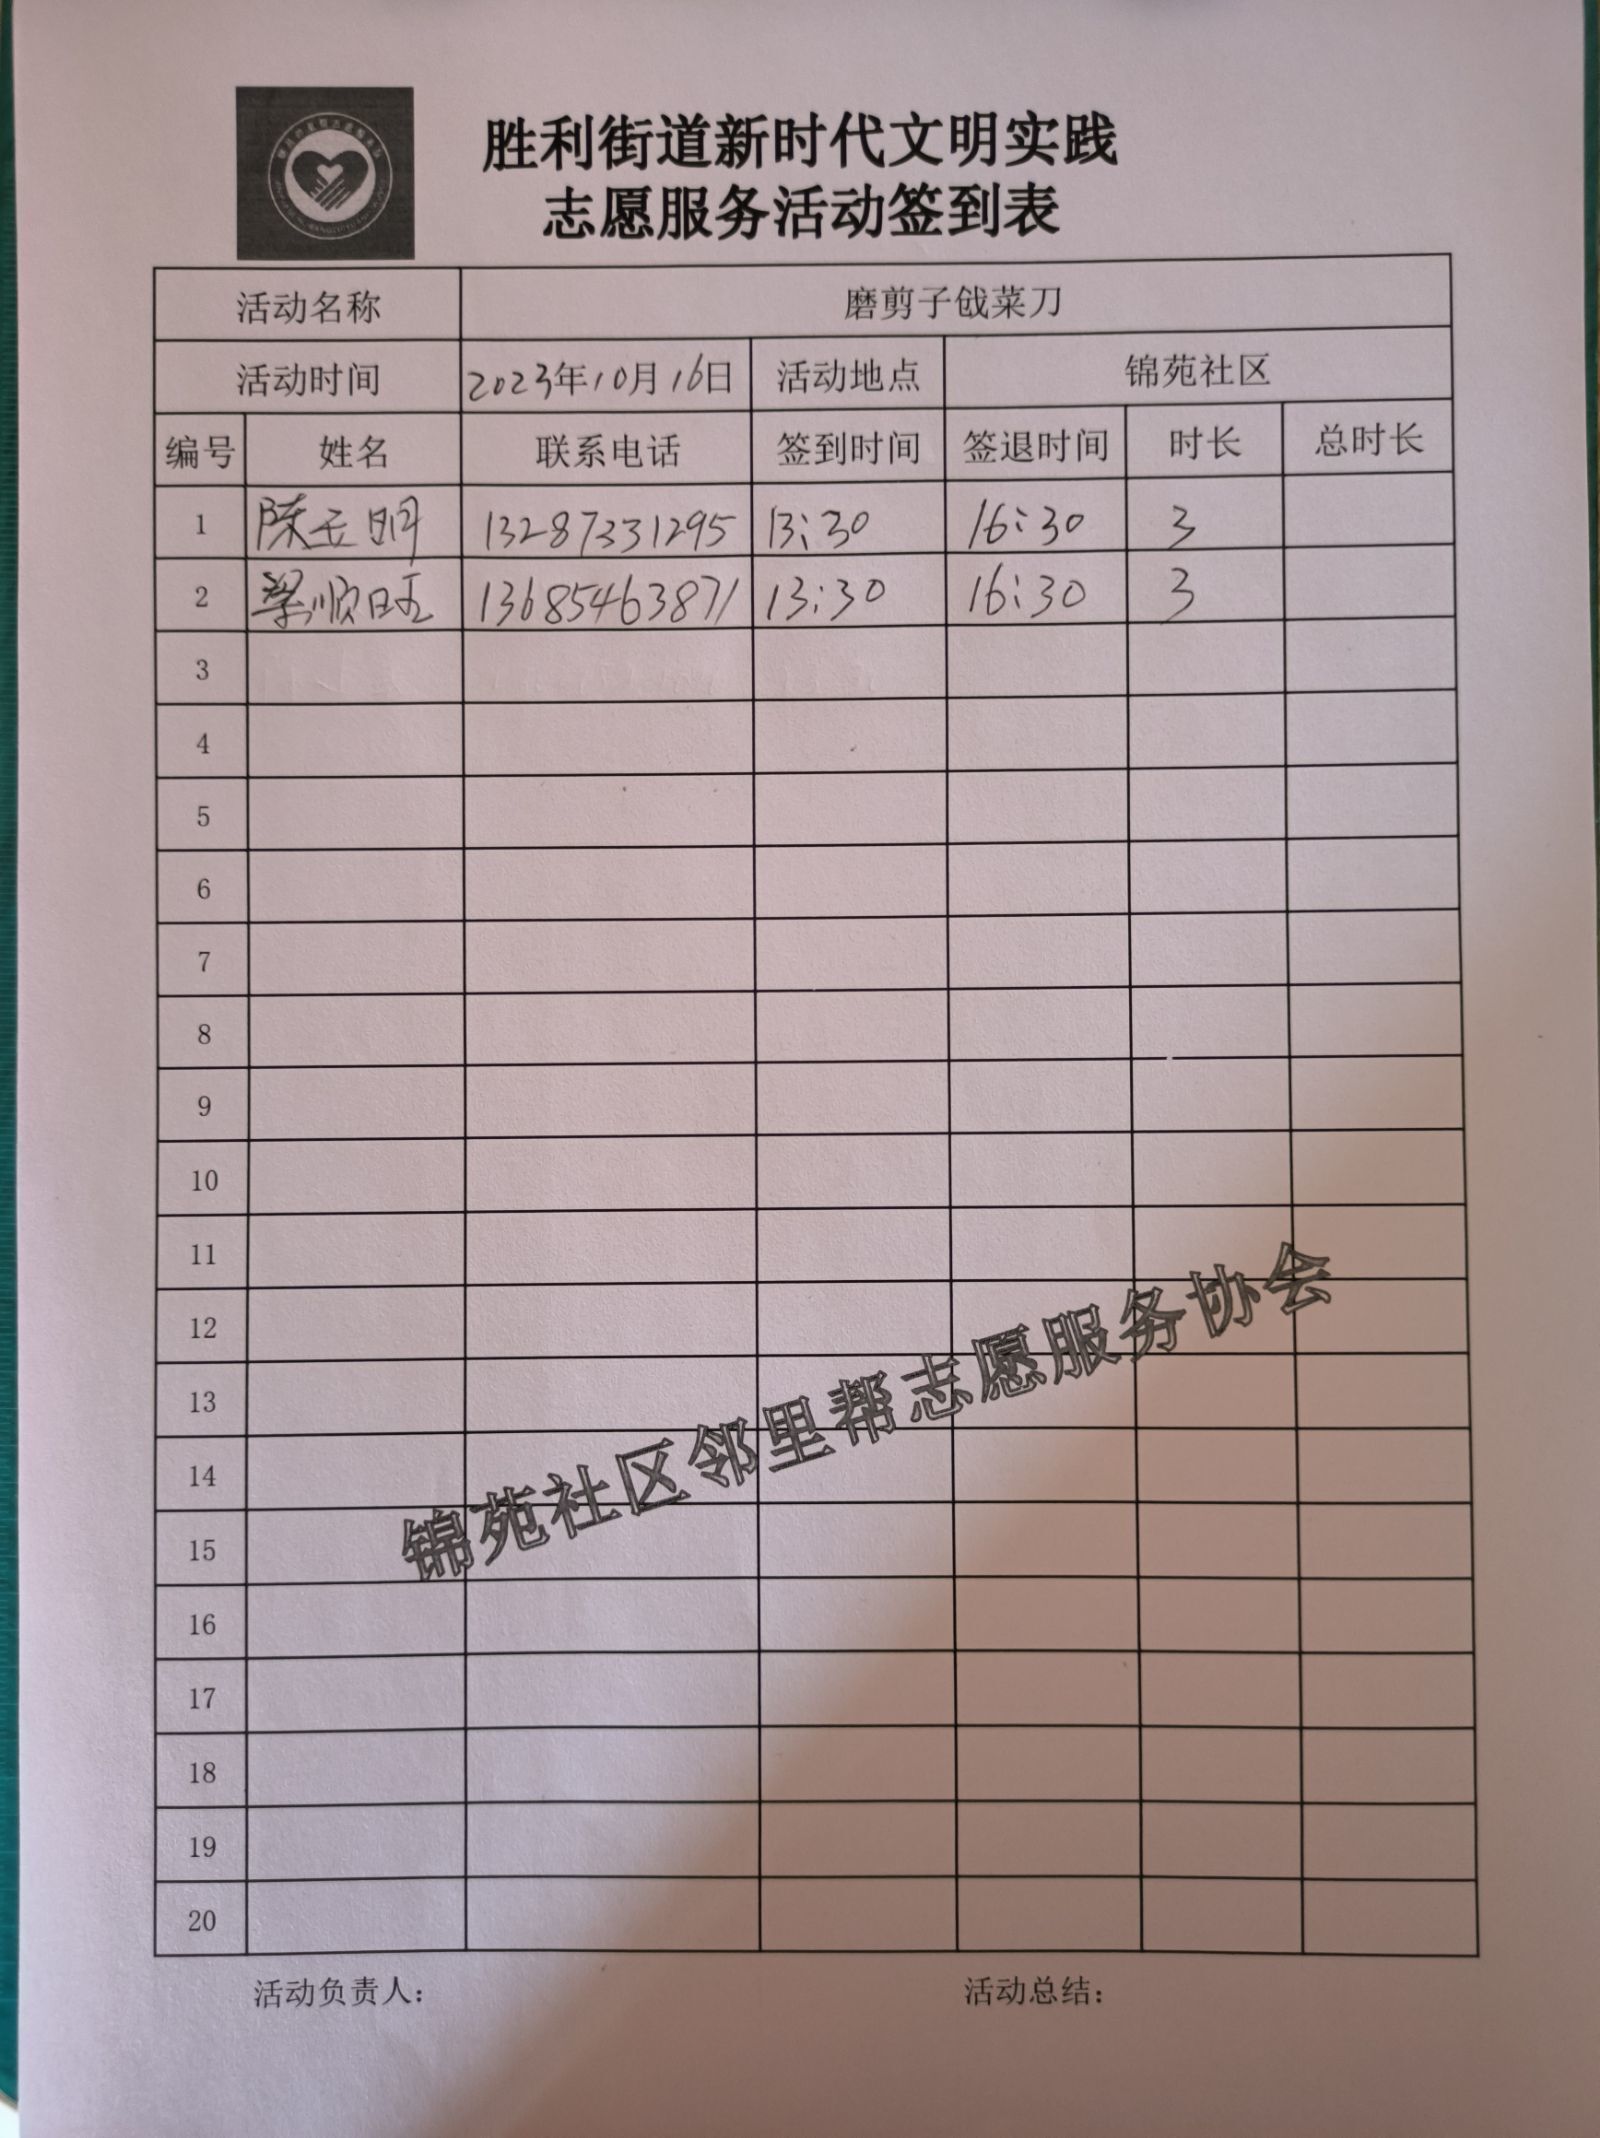 胜利街道新时代文明实践
志愿服务活动签到表
活动名称 磨剪子戗菜刀
活动时间 2023年10月16日 活动地点 锦苑社区
编号 姓名 联系电话 签到时间 签退时间 时长 总时长
1 陈玉明 13287331295 13:30 16:30 3
2 梁顺旺 13685463871 13:30 16:30 3
3
4
5
6
7
8
9
10
11
12
13
14
15
16
17
18
19
20
锦苑社区邻里帮志愿服务协会
活动负责人: 活动总结: